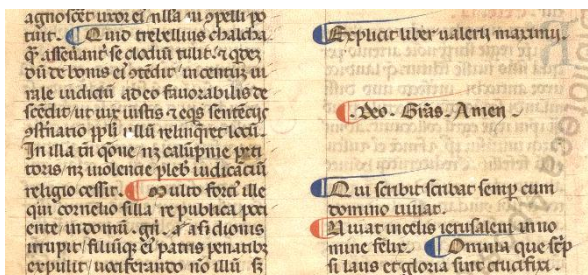 agnoscet uxor ei nulla ui ꝯpelli po
tuit. Quid trebellius chalcha
q̄ asseuant se clodiū tulit. ⁊ qd̄
dū de bonis ei ꝯtēdit in centūz ui
rale iudiciū adeo fauorabilis de
scēdit ut uix iustis ⁊ eqs sententijs
relinq̄ret locū
In illa tn̄ qōne nz calūpnie peti
toris nz uiolentie pleb iudicātiū
religio cessit. Multo forcī ille
qui cornelio silla re publica poti
ente in domū gn. asidionis
irrupit filiūq̄ ei patris penatibꝫ
expulit uociferando nō illū sꝫ
Explicit liber ualerij maximi.
Deo. Grās. Amen
Qui scribit scribat semp̄ cum
domino uiuat.
Viuat in celis ierusalem in no
mine felix. Omnia que scp̄
si laus et gloria sint crucifixi